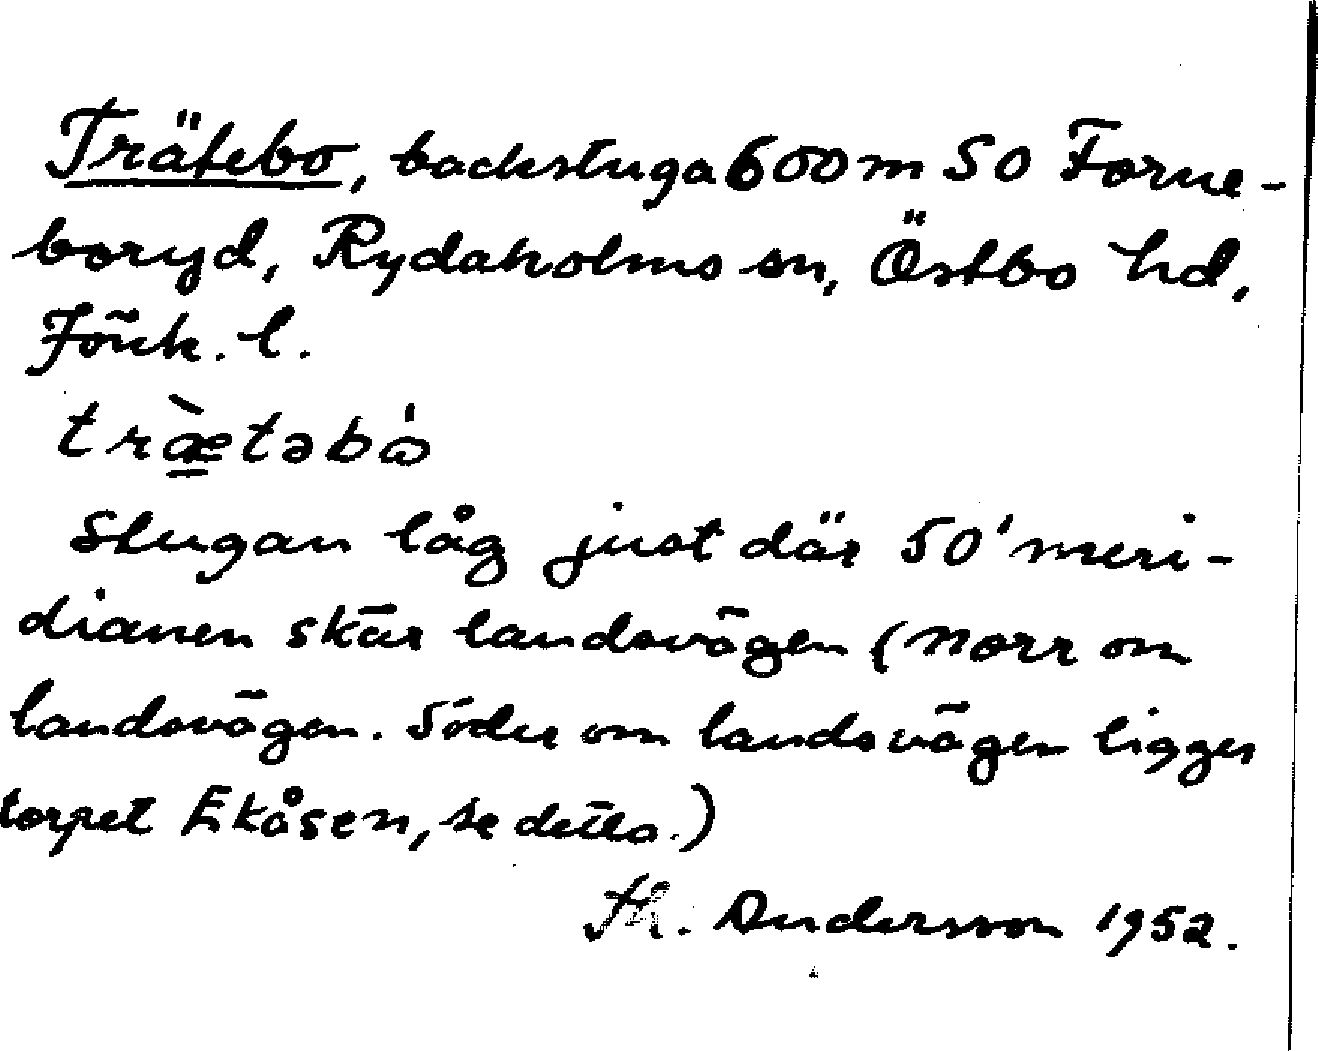 Trätebo, backstuga 600 m SO Forne-
boryd, Rydaholms sn, Östbo hd,
Jönk. l.
træ̀təbå̍
Stugan låg just där 50' meri-
dianen skär landsvägen (norr om
landsvägen. Söder om landsvägen ligger
torpet Ekåsen, se detta.)
Th. Andersson 1952.